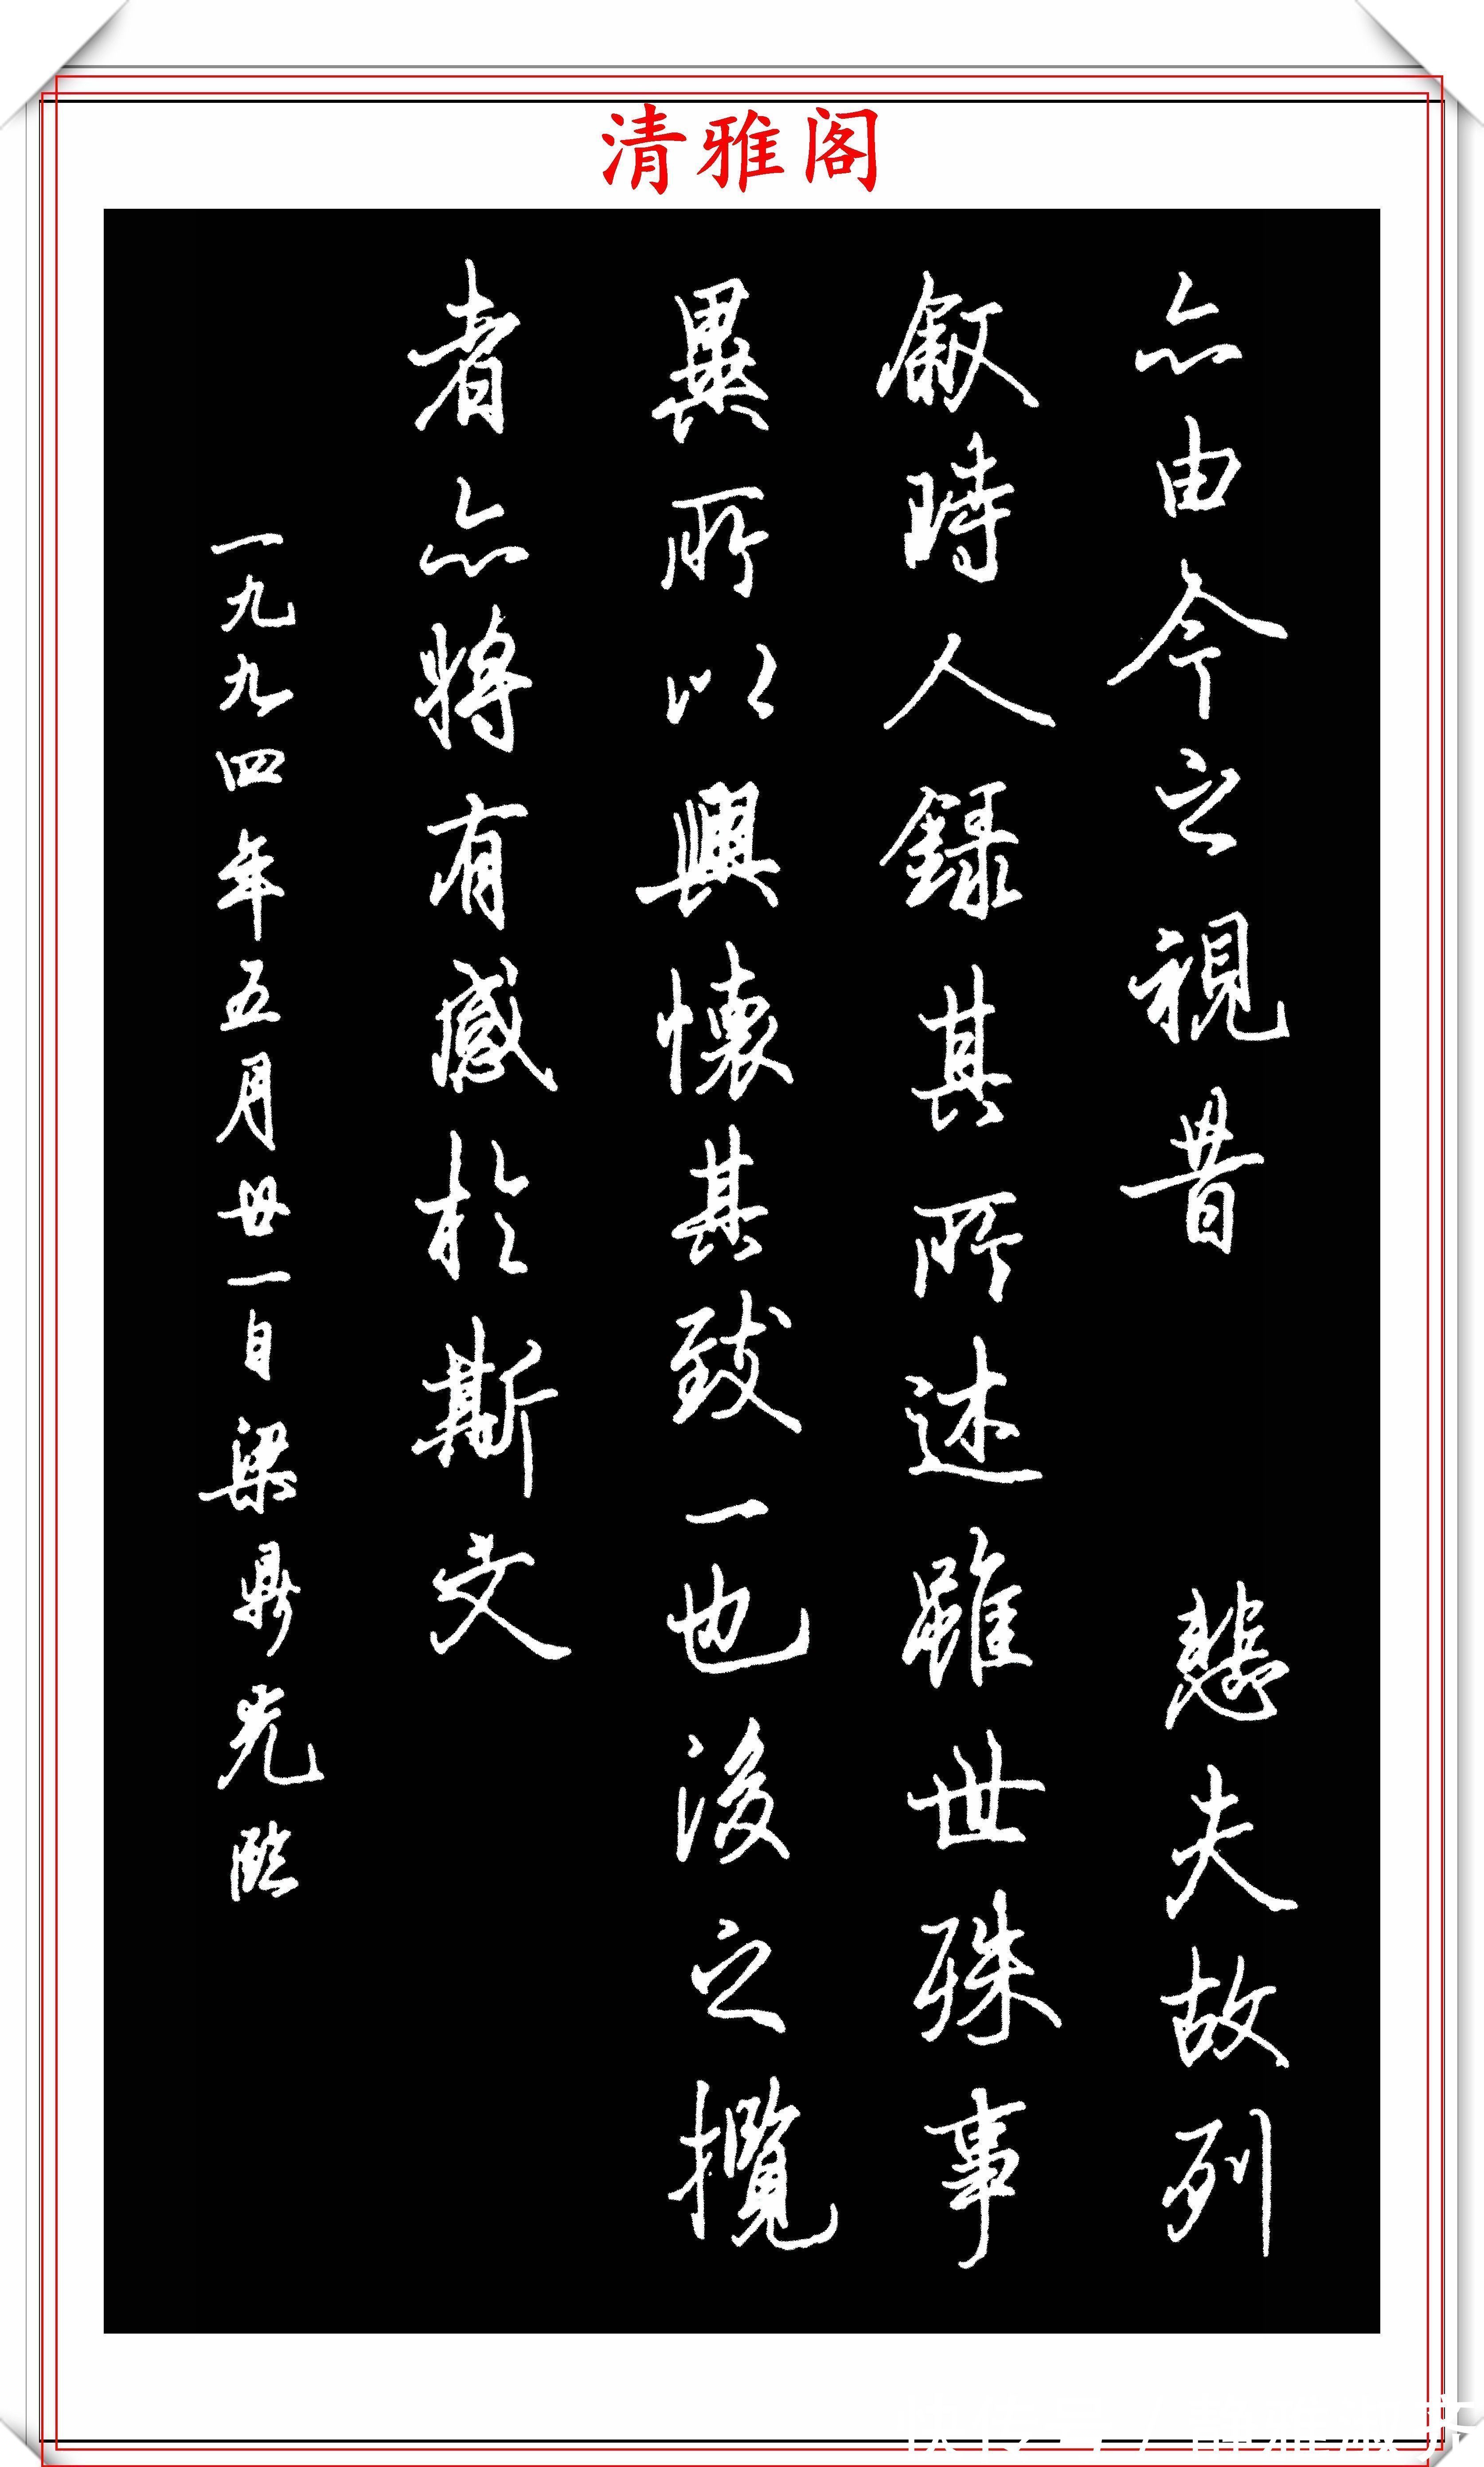 清雅阁
亦由今之視昔 悲夫故列
敘時人録其所述雖世殊事
異所以興懷其致一也後之攬
者亦將有感於斯文
一九九四年五月廿一日梁鼎光臨